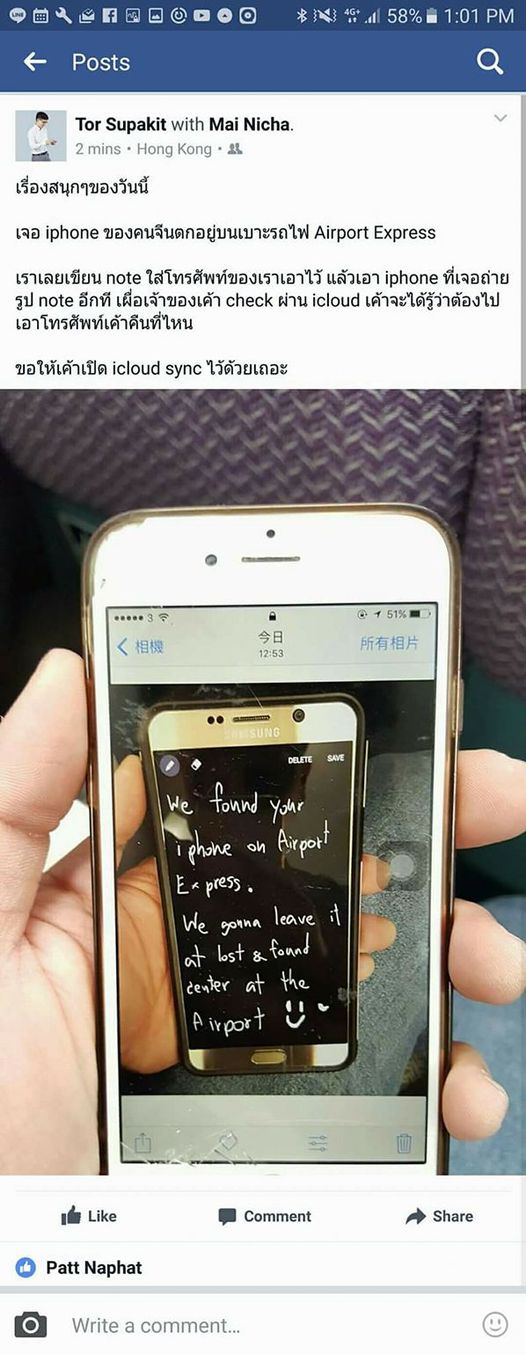 58% 1:01 PM
Posts
Tor Supakit with Mai Nicha.
2 mins • Hong Kong •
เรื่องสนุกๆของวันนี้
เจอ iphone ของคนจีนตกอยู่บนเบาะรถไฟ Airport Express
เราเลยเขียน note ใส่โทรศัพท์ของเราเอาไว้ แล้วเอา iphone ที่เจอถ่าย
รูป note อีกที เผื่อเจ้าของเค้า check ผ่าน icloud เค้าจะได้รู้ว่าต้องไป
เอาโทรศัพท์เค้าคืนที่ไหน
ขอให้เค้าเปิด icloud sync ไว้ด้วยเถอะ
3 51%
相機 今日 所有相片
12:53
SAMSUNG
DELETE SAVE
We found your
iphone on Airport
Express.
We gonna leave it
at lost & found
center at the
Airport
Like Comment Share
Patt Naphat
Write a comment...